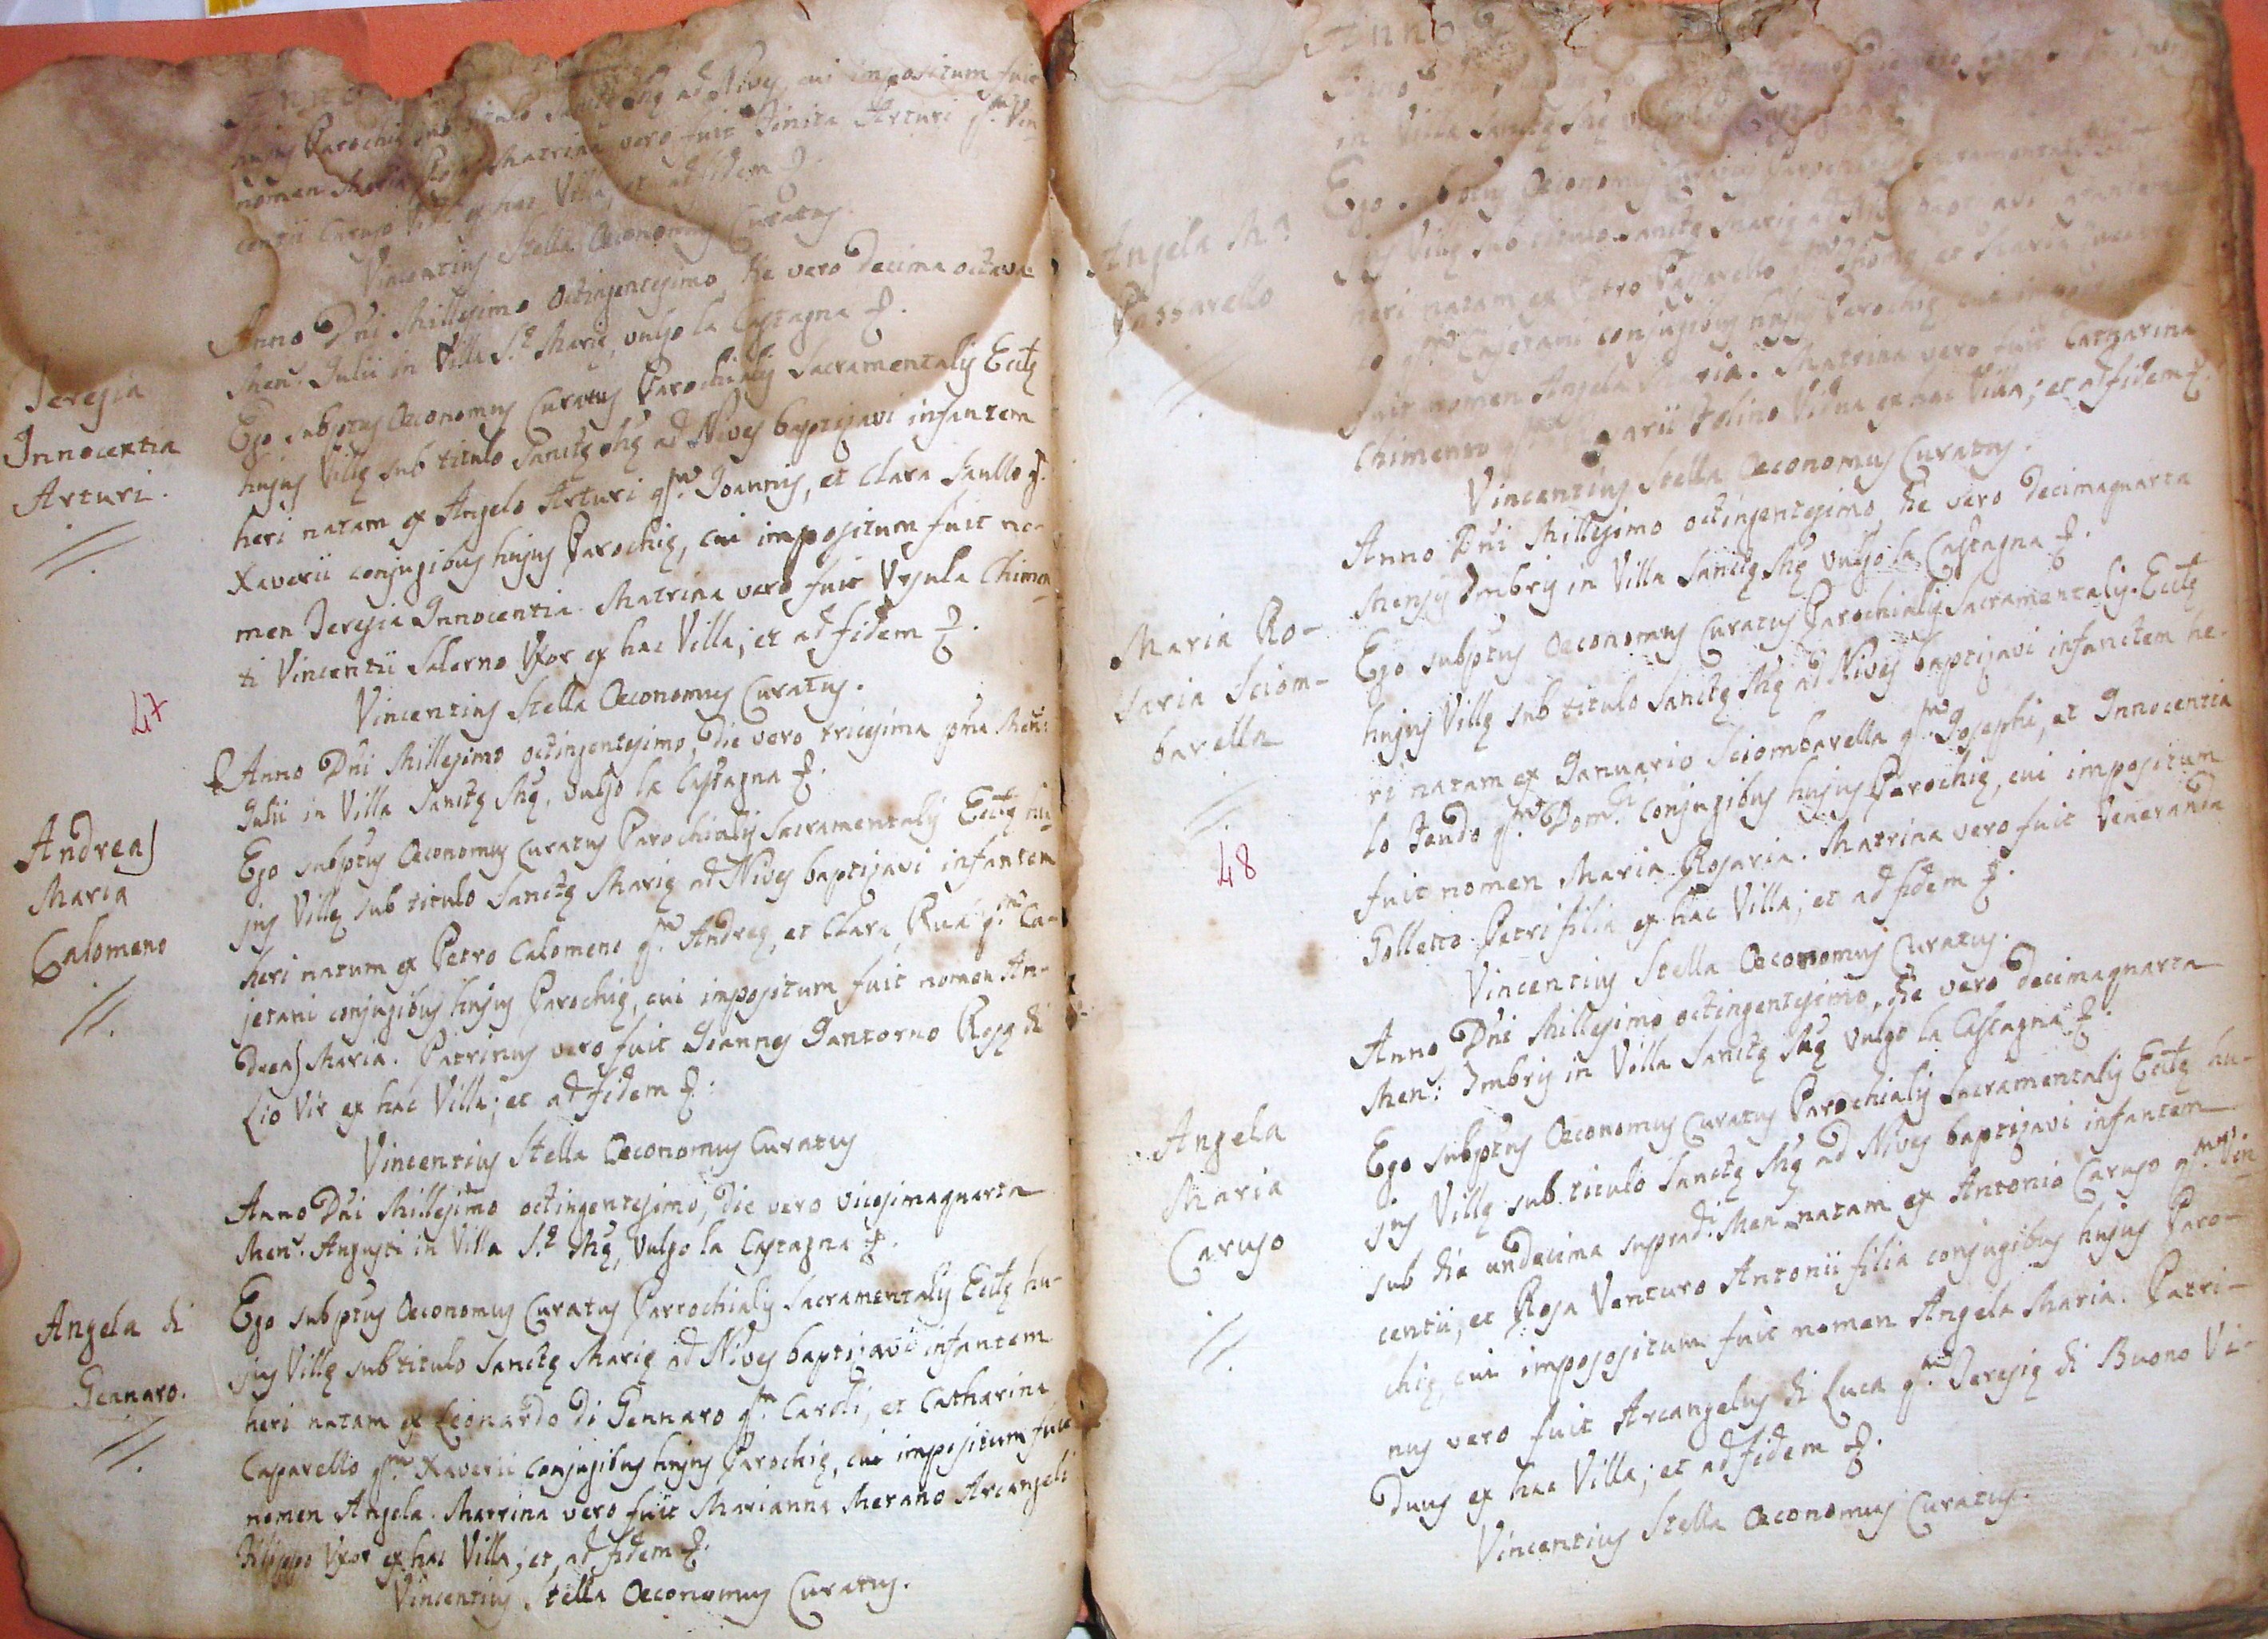 hujus Parochię sub titulo Sanctę Mę ad Nives, cui impositum fuit
nomen Maria Rosa. Matrina vero fuit Arturi qm. Vin-
centii Caruso ex hac Villa, et ad fidem
Vincentius Stella Œconomus Curatus.
Teresia
Innocentia
Arturi.
Anno Dni Millesimo octingentesimo, die vero decima octava
Mens. Julii in Villa S.ę Marię, vulgo la Castagna
Ego subptus Œconomus Curatus Parochialis Sacramentalis Ecclę
hujus Villę sub titulo Sanctę Mę ad Nives baptizavi infantem
heri natam ex Angelo Arturi qm. Joannis, et Clara Saullo q.
Xaverii conjugibus hujus Parochię, cui impositum fuit no-
men Teresia Innocentia. Matrina vero fuit Ursula Chimen
ti Vincentii Salerno Uxor ex hac Villa; et ad fidem
Vincentius Stella Œconomus Curatus.
47
Andreas
Maria
Calomeno
Anno Dni Millesimo octingentesimo, die vero tricesima pma Men:
Julii in Villa Sanctę Mę, vulgo la Castagna
Ego subptus Œconomus Curatus Parochialis Sacramentalis Ecclę hu
jus Villę sub titulo Sanctę Marię ad Nives baptizavi infantem
heri natum ex Petro Calomeno qm. Andreę, et Clara Rua qm. Ca-
jetani conjugibus hujus Parochię, cui impositum fuit nomen An-
dreas Maria. Patrinus vero fuit Joannes Jantorno Rosę di
Lio Vir ex hac Villa; et ad fidem
Vincentius Stella Œconomus Curatus
Angela di
Gennaro.
Anno Dni Millesimo octingentesimo, die vero vicesimaquarta
Mens. Augusti in Villa S.ę Mę, vulgo la Castagna
Ego subptus Œconomus Curatus Parrochialis Sacramentalis Ecclę hu-
jus Villę sub titulo Sanctę Marię ad Nives baptizavi infantem
heri natam ex Leonardo di Gennaro qm. Caroli, et Catharina
Casparello qm. Xaverii conjugibus hujus Parochię, cui impositum fuit
nomen Angela. Matrina vero fuit Marianna Merano Arcangeli
Filippo Uxor ex hac Villa; et ad fidem
Vincentius Stella Œconomus Curatus.
Anno
in Villa Sanctę Mę
Angela Ma
Passarello
Ego Œconomus Curatus
jus Villę sub titulo Sanctę Marię ad
heri natam ex Petro Passarello qm. et Maria
qm. Cajetani conjugibus hujus Parochię cui
fuit nomen Angela Maria. Matrina vero fuit Catharina
Chimento Folino Vidua ex hac Villa; et ad fidem
Vincentius Stella Œconomus Curatus.
Maria Ro-
saria Sciom-
barella
48
Anno Dni Millesimo octingentesimo die vero decimaquarta
Mensis Xmbris in Villa Sanctę Mę vulgo la Castagna
Ego subptus Œconomus Curatus Parochialis Sacramentalis Ecclę
hujus Villę sub titulo Sanctę Mę ad Nives baptizavi infanctem he-
ri natam ex Januario Sciombarella qm. Josephi, et Innocentia
lo Feudo qm. Domci. conjugibus hujus Parochię, cui impositum
fuit nomen Maria Rosaria. Matrina vero fuit Veneranda
Folletto Petri filia ex hac Villa; et ad fidem
Vincentius Stella Œconomus Curatus.
Angela
Maria
Caruso
Anno Dni Millesimo octingentesimo, die vero decimaquarta
Men: Xmbris in Villa Sanctę Mę vulgo la Castagna
Ego subptus Œconomus Curatus Parochialis Sacramentalis Ecclę hu-
jus Villę sub titulo Sanctę Mę ad Nives baptizavi infantem
sub die undecima supradi. Men. natam ex Antonio Caruso qm. Vin
centii, et Rosa Venturo Antonii filia conjugibus hujus Paro-
chię, cui imposositum fuit nomen Angela Maria. Patri-
nus vero fuit Arcangelus di Luca qm. Teresię di Buono Vi-
duus ex hac Villa; et ad fidem
Vincentius Stella Œconomus Curatus.